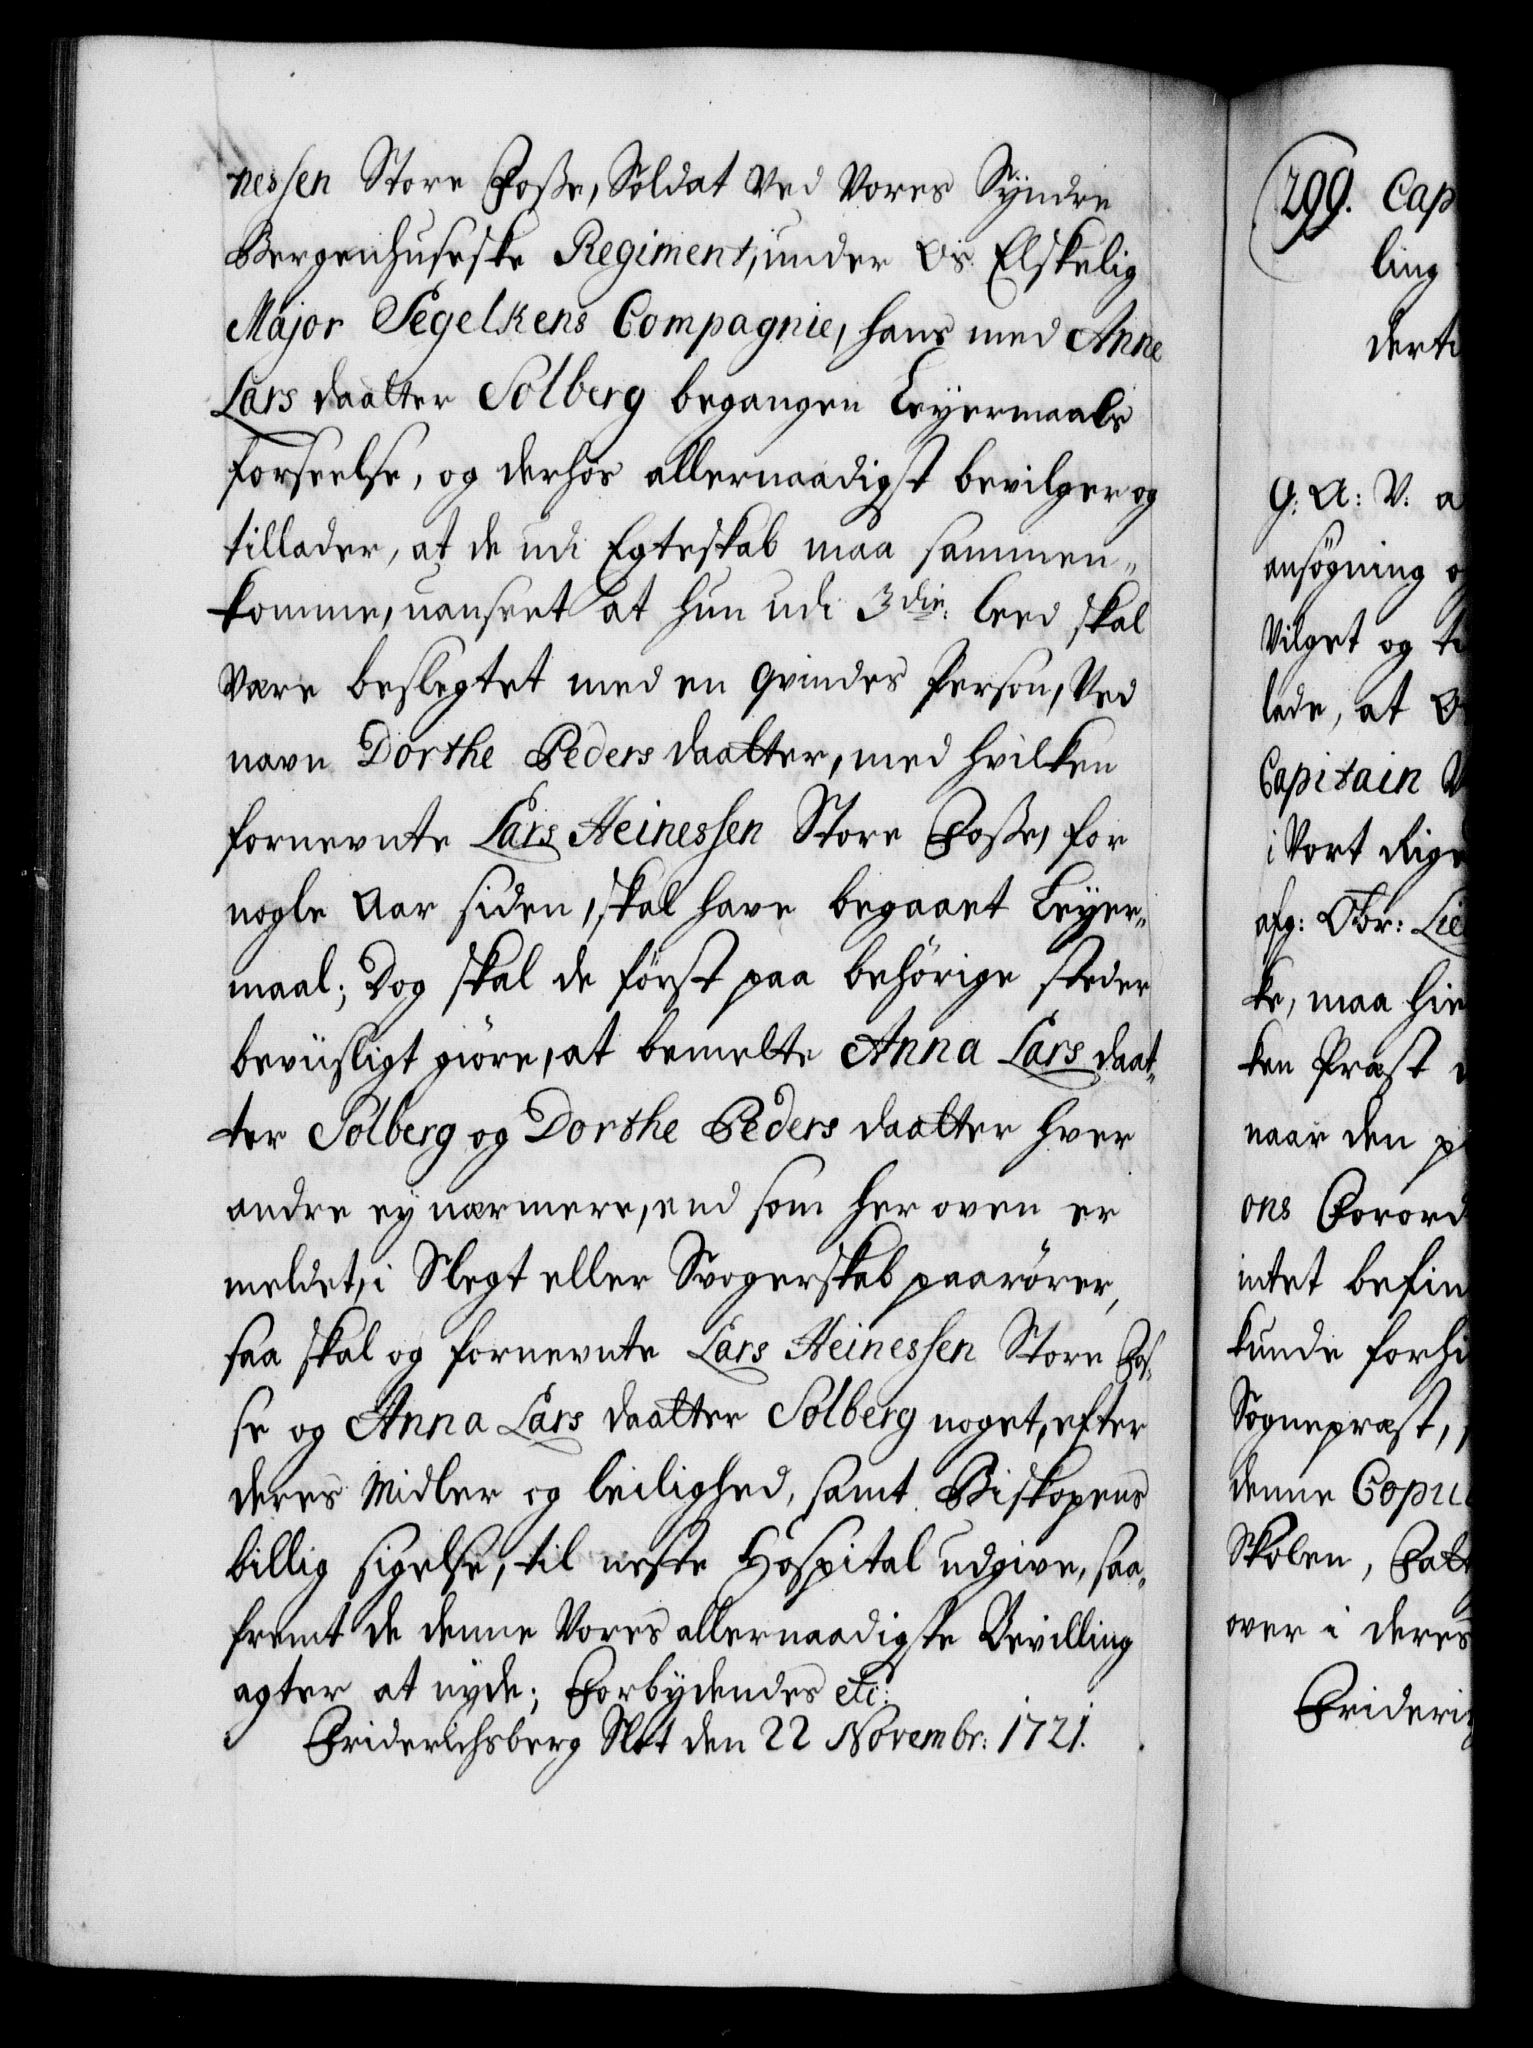 nessen Store Fosse, Soldat ved Vores Syndre
Bergenhusiske Regiment, under Os Elskelig
Major Segelkens Compagnie, hans med Anne
Lars daatter Solberg begangen Leyermaals
forseelse, og derhos allernaadigst bevilger og
tillader, at de udi Egteskab maa sammen-
komme, uanseet at hun udi 3die: leed skal
være beslegtet med en qvindes Person, ved
navn Dorthe Peders daatter, med hvilken
fornevnte Lars Heinessen Store Fosse, for
nogle Aar siden, skal have begaaet Leyer-
maal; Dog skal de først paa behörige steder
beviisligt giöre, at bemelte Anna Lars daat-
ter Solberg og Dorthe Peders daatter hver
andre ey nærmere, end som her oven er
meldet, i Slegt eller Svogerskab paarörer,
saa skal og fornevnte Lars Heinessen Store Fos-
se og Anna Lars daatter Solberg noget, efter
deres Midler og leilighed, samt Biskopens
billig sigelse, til neste Hospital udgive, saa-
fremt de denne Vores allernaadigste Bevilling
agter at nyde; Forbydendes etc:
Friderichsberg Slot den 22 Novembr: 1721.
299. Cap
ling
derti
G: A: V: a
ansögning o
vilget og ti
lade, at
Capitain V
i Vort Rige
afg: Obr: Lie
ke, maa hie
ken Præst
naar den p
ons Forord
intet befin
kunde forhi
Sognepræst,
denne Copul
Skolen, Fatt
over i deres
Friderig